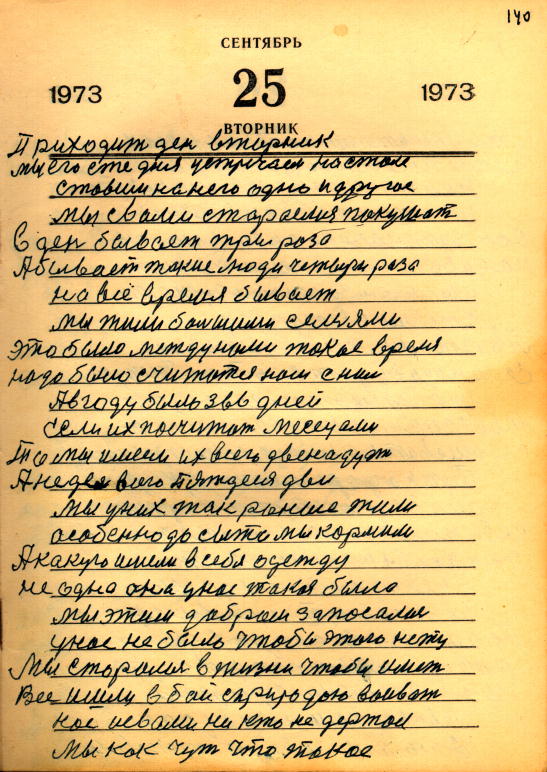 140
СЕНТЯБРЬ
1973 25 1973
ВТОРНИК
Приходит ден вторник
мы его сте дня устричаем на столе
ставим на него одно и другое
мы с вами стараемся покушат
в ден бывает три раза
А бывает такие люди четыри раза
на всё время бывает
мы жили большими семьями
Это было между нами такое время
надо было считатся нам с ним
А в году было 366 дней
если их посчитат месецами
То мы имели их всего двенадцат
А недел всего пятдеся две
мы у них так раньше жили
особенно до сыта мы кормили
А какую имели в себя одежду
не одна она у нас такая была
мы этим добром запосалися
у нас не было чтобы этого нету
Мы старалися в жизни чтобы имет
Все ишли в бой с природою воеват
нас не вали ни кто не держал
мы как чут что такое